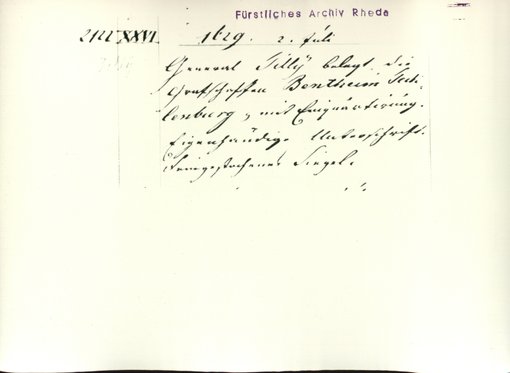 Fürstliches Archiv Rheda
XXVI. 1629. 2. Juli
General Tilly belegt die
Grafschaften Bentheim Teck-
lenburg, mit Einquartirung.
Eigenhändige Unterschrift.
Siegel.